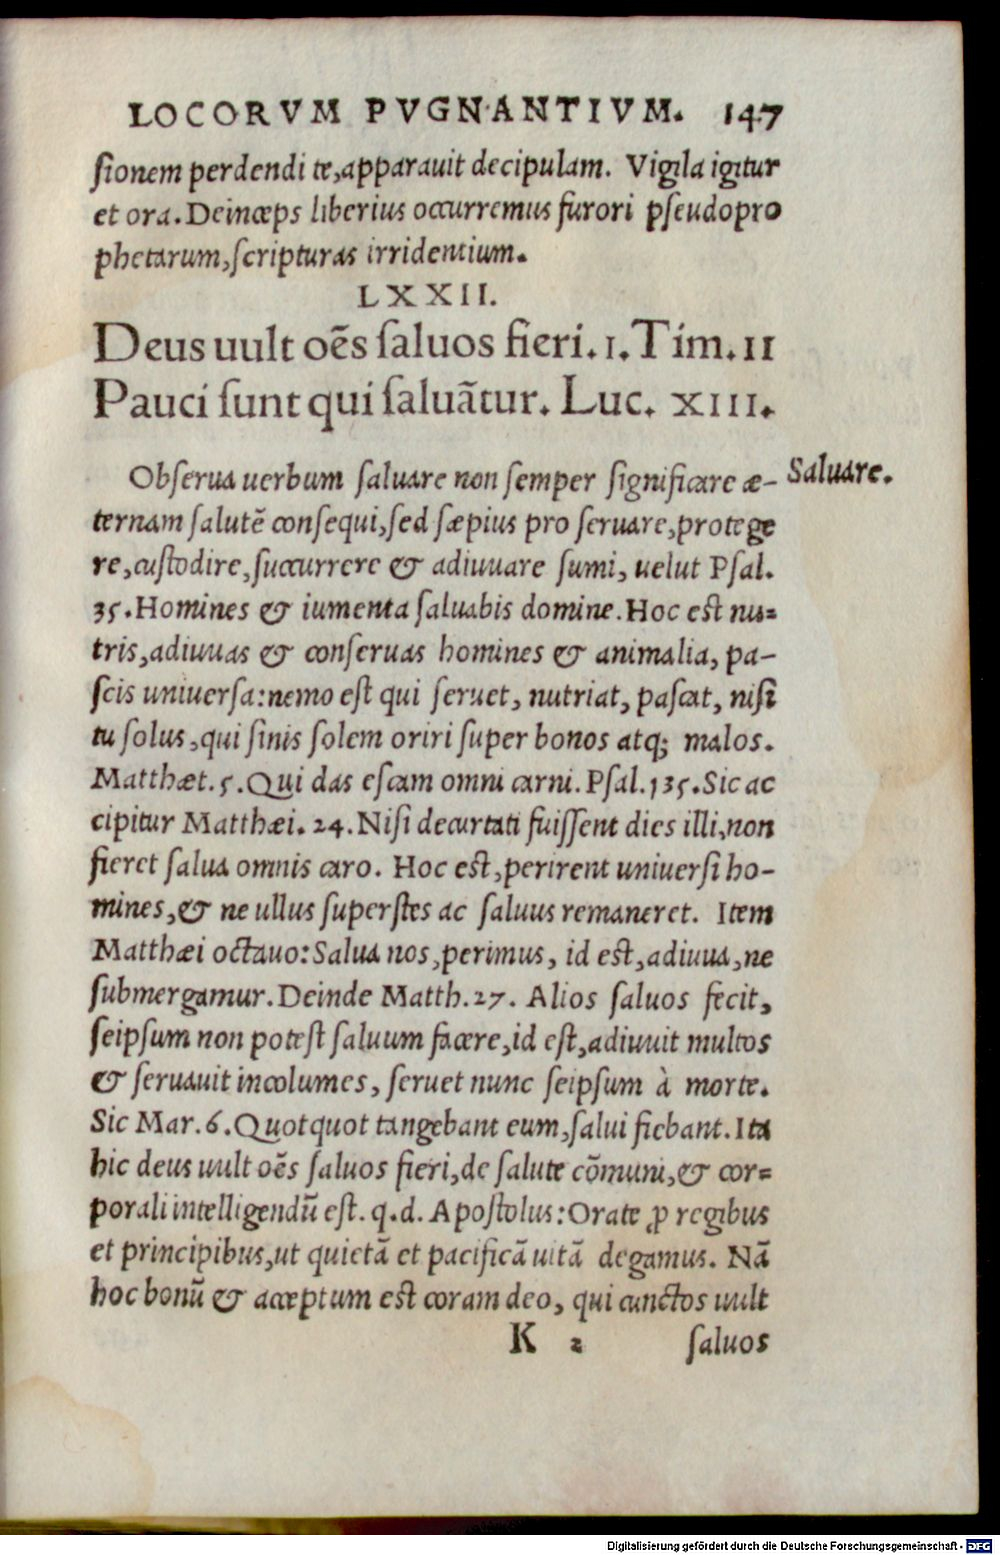 LOCORVM PVGNANTIVM. 147
ſionem perdendi te,apparauit decipulam. Vigila igitur
et ora. Deinceps liberius occurremus furori pſeudopro
phetarum,ſcripturas irridentium.
LXXII.
Deus uult oēs ſaluos fieri. 1. Tim. II
Pauci ſunt qui ſaluātur. Luc. XIII.
Obſerua uerbum ſaluare non ſemper ſignificare æ-
Saluare.
ternam ſalutē conſequi,ſed ſæpius pro ſeruare,protege
re,cuſtodire,ſuccurrere & adiuuare ſumi, uelut Pſal.
35. Homines & iumenta ſaluabis domine. Hoc eſt nu=
tris,adiuuas & conſeruas homines & animalia, pa-
ſcis uniuerſa: nemo eſt qui ſeruet, nutriat, paſcat, niſi
tu ſolus,qui ſinis ſolem oriri ſuper bonos atq; malos.
Matthæt. 5. Qui das eſcam omni carni. Pſal. 135. Sic ac
cipitur Matthæi. 24. Niſi decurtati fuiſſent dies illi,non
fieret ſalua omnis caro. Hoc eſt,perirent uniuerſi ho-
mines,& ne ullus ſuperſtes ac ſaluus remaneret. Item
Matthæi octauo: Salua nos,perimus, id eſt,adiuua,ne
ſubmergamur. Deinde Matth. 27. Alios ſaluos fecit,
ſeipſum non poteſt ſaluum facere,id eſt,adiuuit multos
& ſeruauit incolumes, ſeruet nunc ſeipſum à morte.
Sic Mar. 6. Quotquot tangebant eum,ſalui fiebant. Ita
hic deus uult oēs ſaluos fieri,de ſalute cōmuni,& cor=
porali intelligendū eſt. q.d. Apoſtolus: Orate ꝓ regibus
et principibus,ut quietā et pacificā uitā degamus. Nā
hoc bonū & acceptum eſt coram deo, qui cunctos uult
K 2 ſaluos
Digitalisierung gefördert durch die Deutsche Forschungsgemeinschaft - DFG